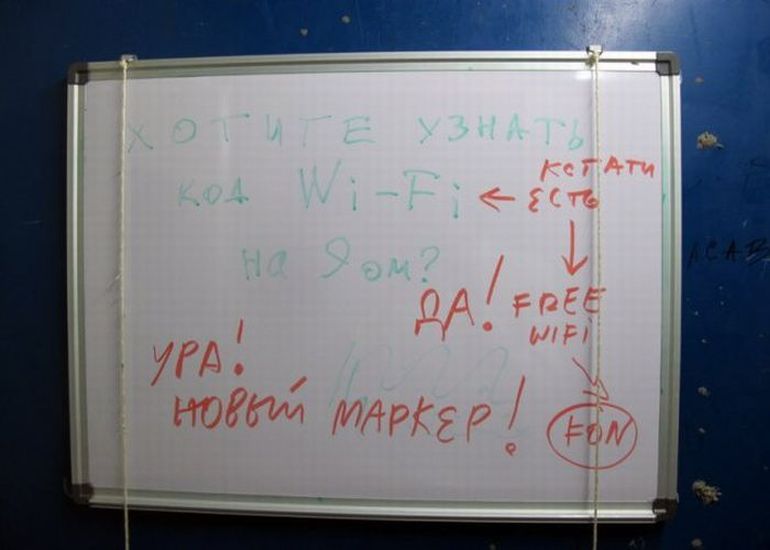 ХОТИТЕ УЗНАТЬ
КОД Wi-Fi
на Яом?
КСТАТИ
← ЕСТЬ
ДА!
FREE
WIFI
FON
УРА!
НОВЫЙ МАРКЕР!
ACAB